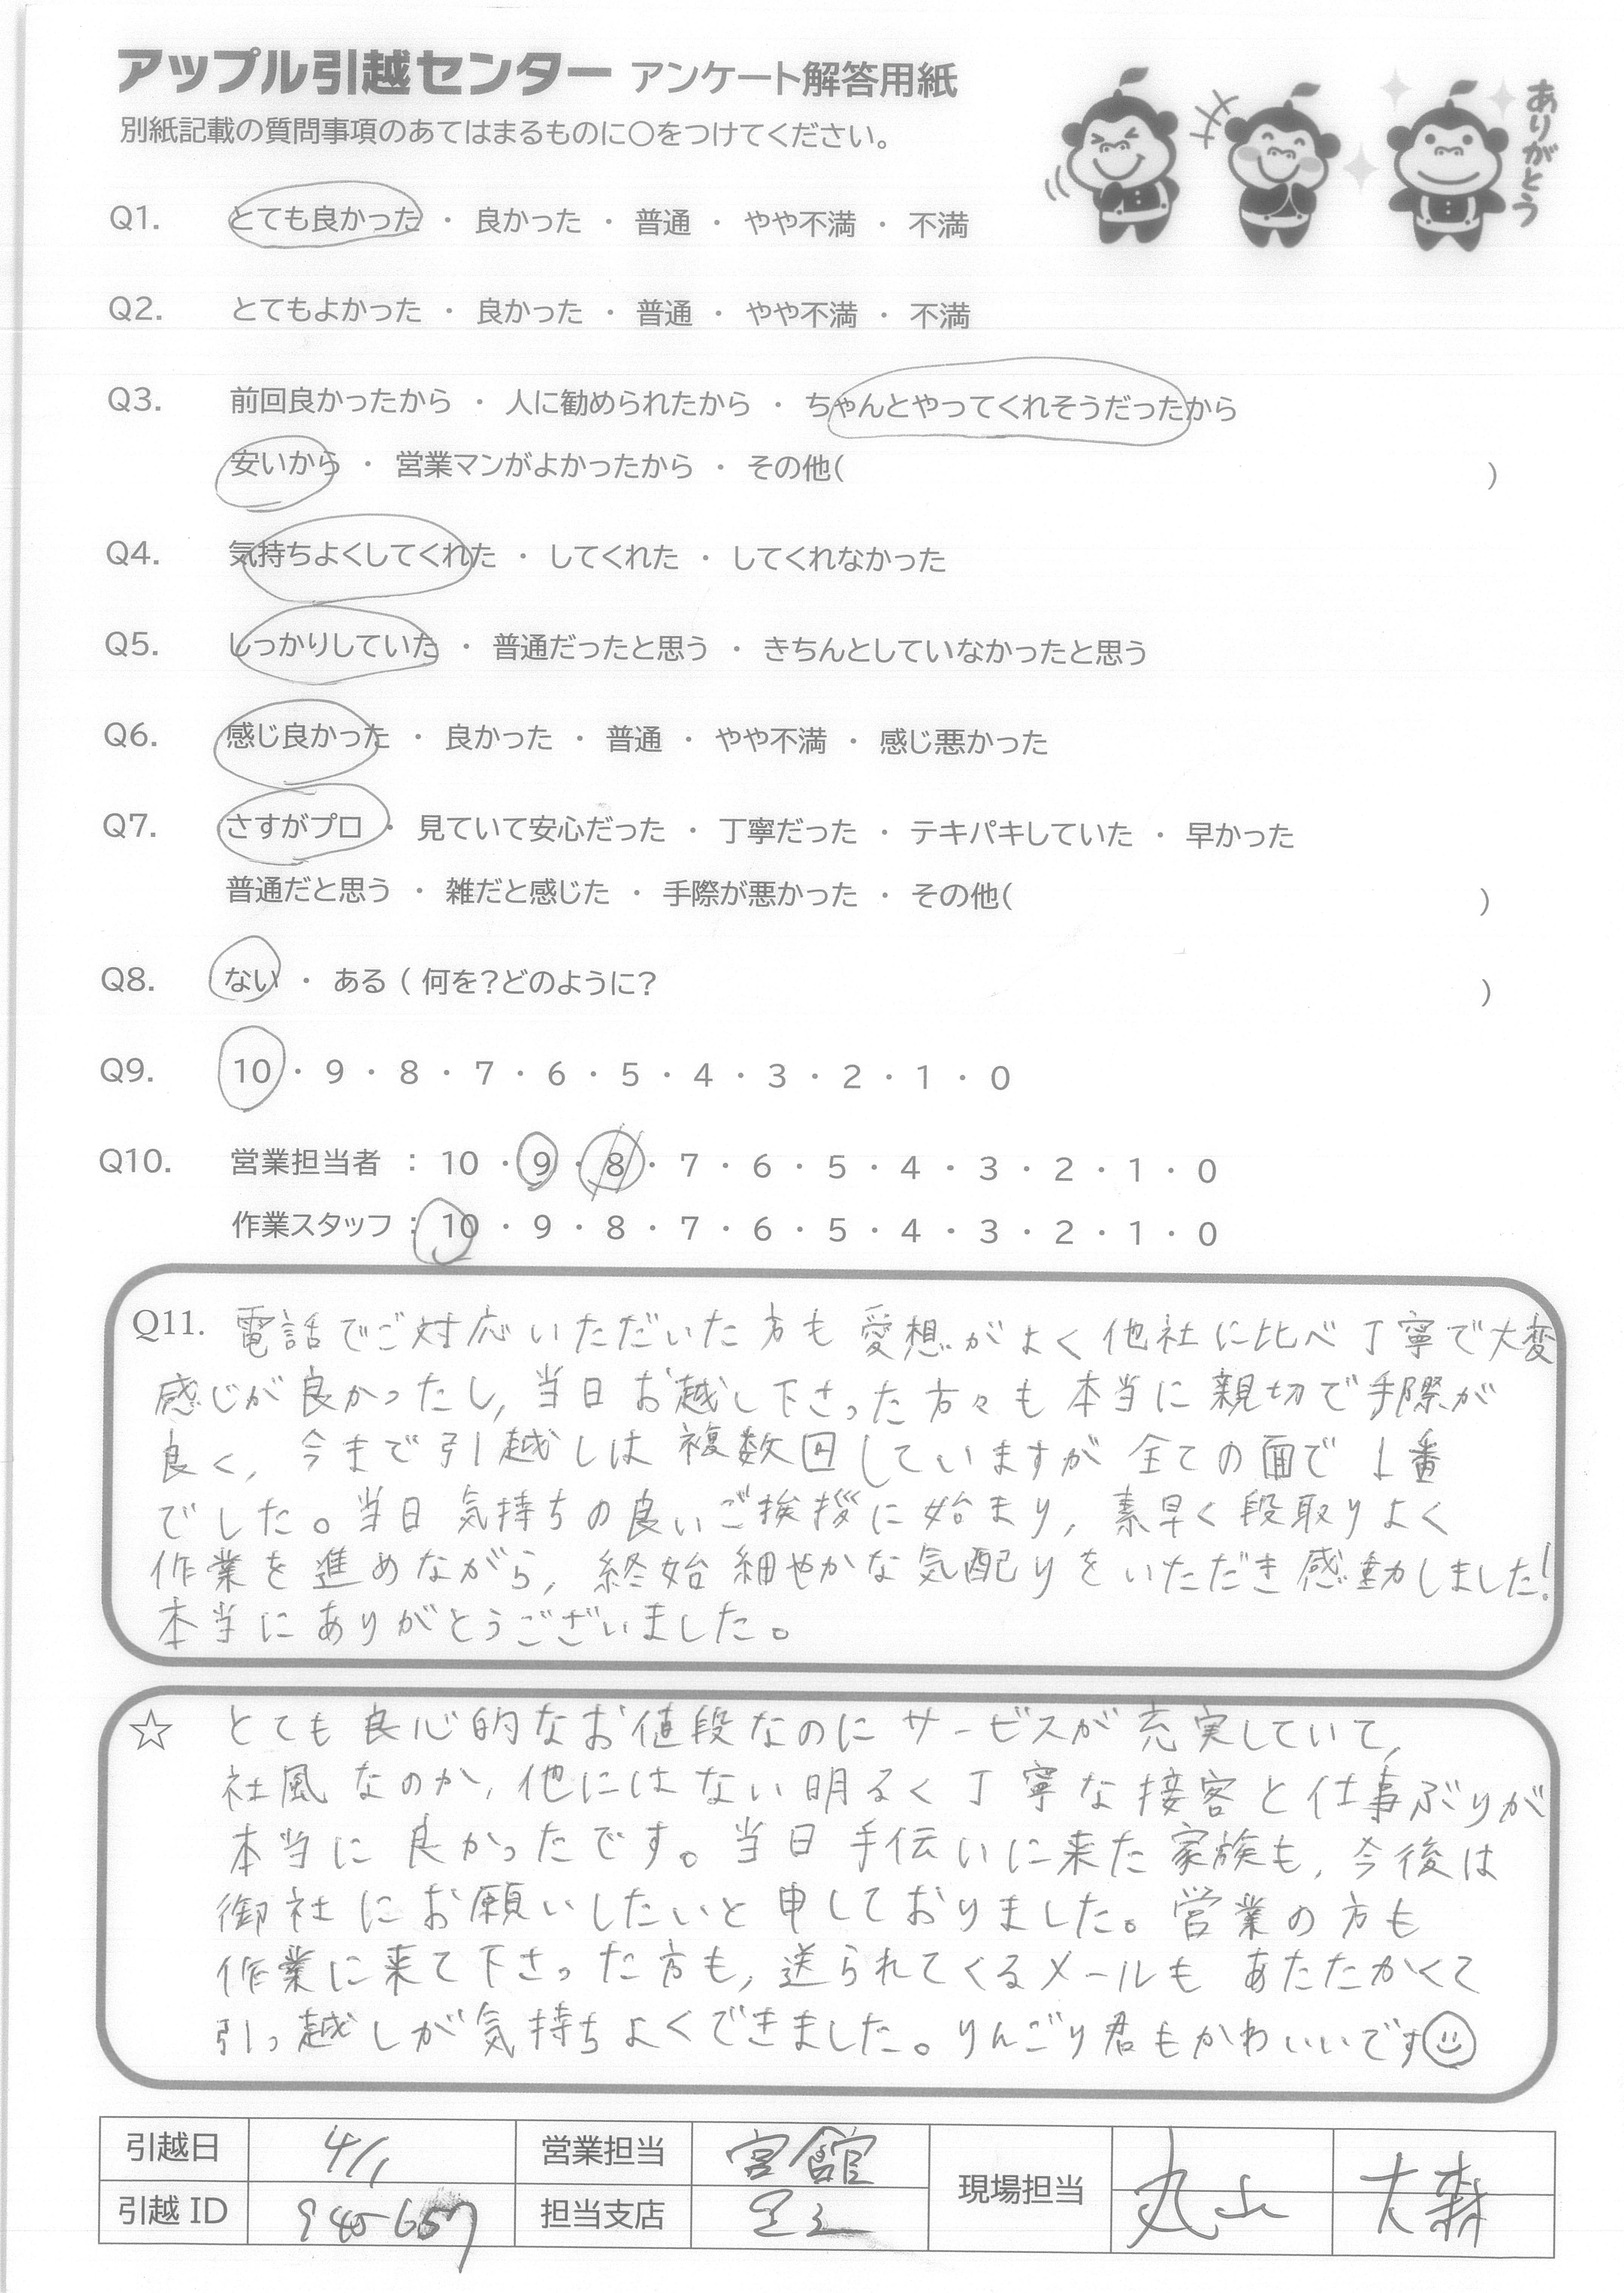 アップル引越センター アンケート解答用紙
別紙記載の質問事項のあてはまるものに○をつけてください。
ありがとう
Q1. とても良かった ・ 良かった ・ 普通 ・ やや不満 ・ 不満
Q2. とてもよかった ・ 良かった ・ 普通 ・ やや不満 ・ 不満
Q3. 前回良かったから ・ 人に勧められたから ・ ちゃんとやってくれそうだったから
安いから ・ 営業マンがよかったから ・ その他( )
Q4. 気持ちよくしてくれた ・ してくれた ・ してくれなかった
Q5. しっかりしていた ・ 普通だったと思う ・ きちんとしていなかったと思う
Q6. 感じ良かった ・ 良かった ・ 普通 ・ やや不満 ・ 感じ悪かった
Q7. さすがプロ ・ 見ていて安心だった ・ 丁寧だった ・ テキパキしていた ・ 早かった
普通だと思う ・ 雑だと感じた ・ 手際が悪かった ・ その他( )
Q8. ない ・ ある ( 何を?どのように? )
Q9. 10 ・ 9 ・ 8 ・ 7 ・ 6 ・ 5 ・ 4 ・ 3 ・ 2 ・ 1 ・ 0
Q10. 営業担当者 : 10 ・ 9 ・ 8 ・ 7 ・ 6 ・ 5 ・ 4 ・ 3 ・ 2 ・ 1 ・ 0
作業スタッフ : 10 ・ 9 ・ 8 ・ 7 ・ 6 ・ 5 ・ 4 ・ 3 ・ 2 ・ 1 ・ 0
Q11. 電話でご対応いただいた方も愛想がよく他社に比べ丁寧で大変
感じが良かったし、当日お越し下さった方々も本当に親切で手際が
良く、今まで引越しは複数回していますが全ての面で1番
でした。当日気持ちの良いご挨拶に始まり、素早く段取りよく
作業を進めながら、終始細やかな気配りをいただき感動しました!
本当にありがとうございました。
☆ とても良心的なお値段なのにサービスが充実していて、
社風なのか、他にはない明るく丁寧な接客と仕事ぶりが
本当に良かったです。当日手伝いに来た家族も、今後は
御社にお願いしたいと申しておりました。営業の方も
作業に来て下さった方も、送られてくるメールもあたたかくて
引っ越しが気持ちよくできました。りんごり君もかわいいです
引越日 4/1 営業担当 宮館 現場担当 丸山 大森
引越ID 945657 担当支店